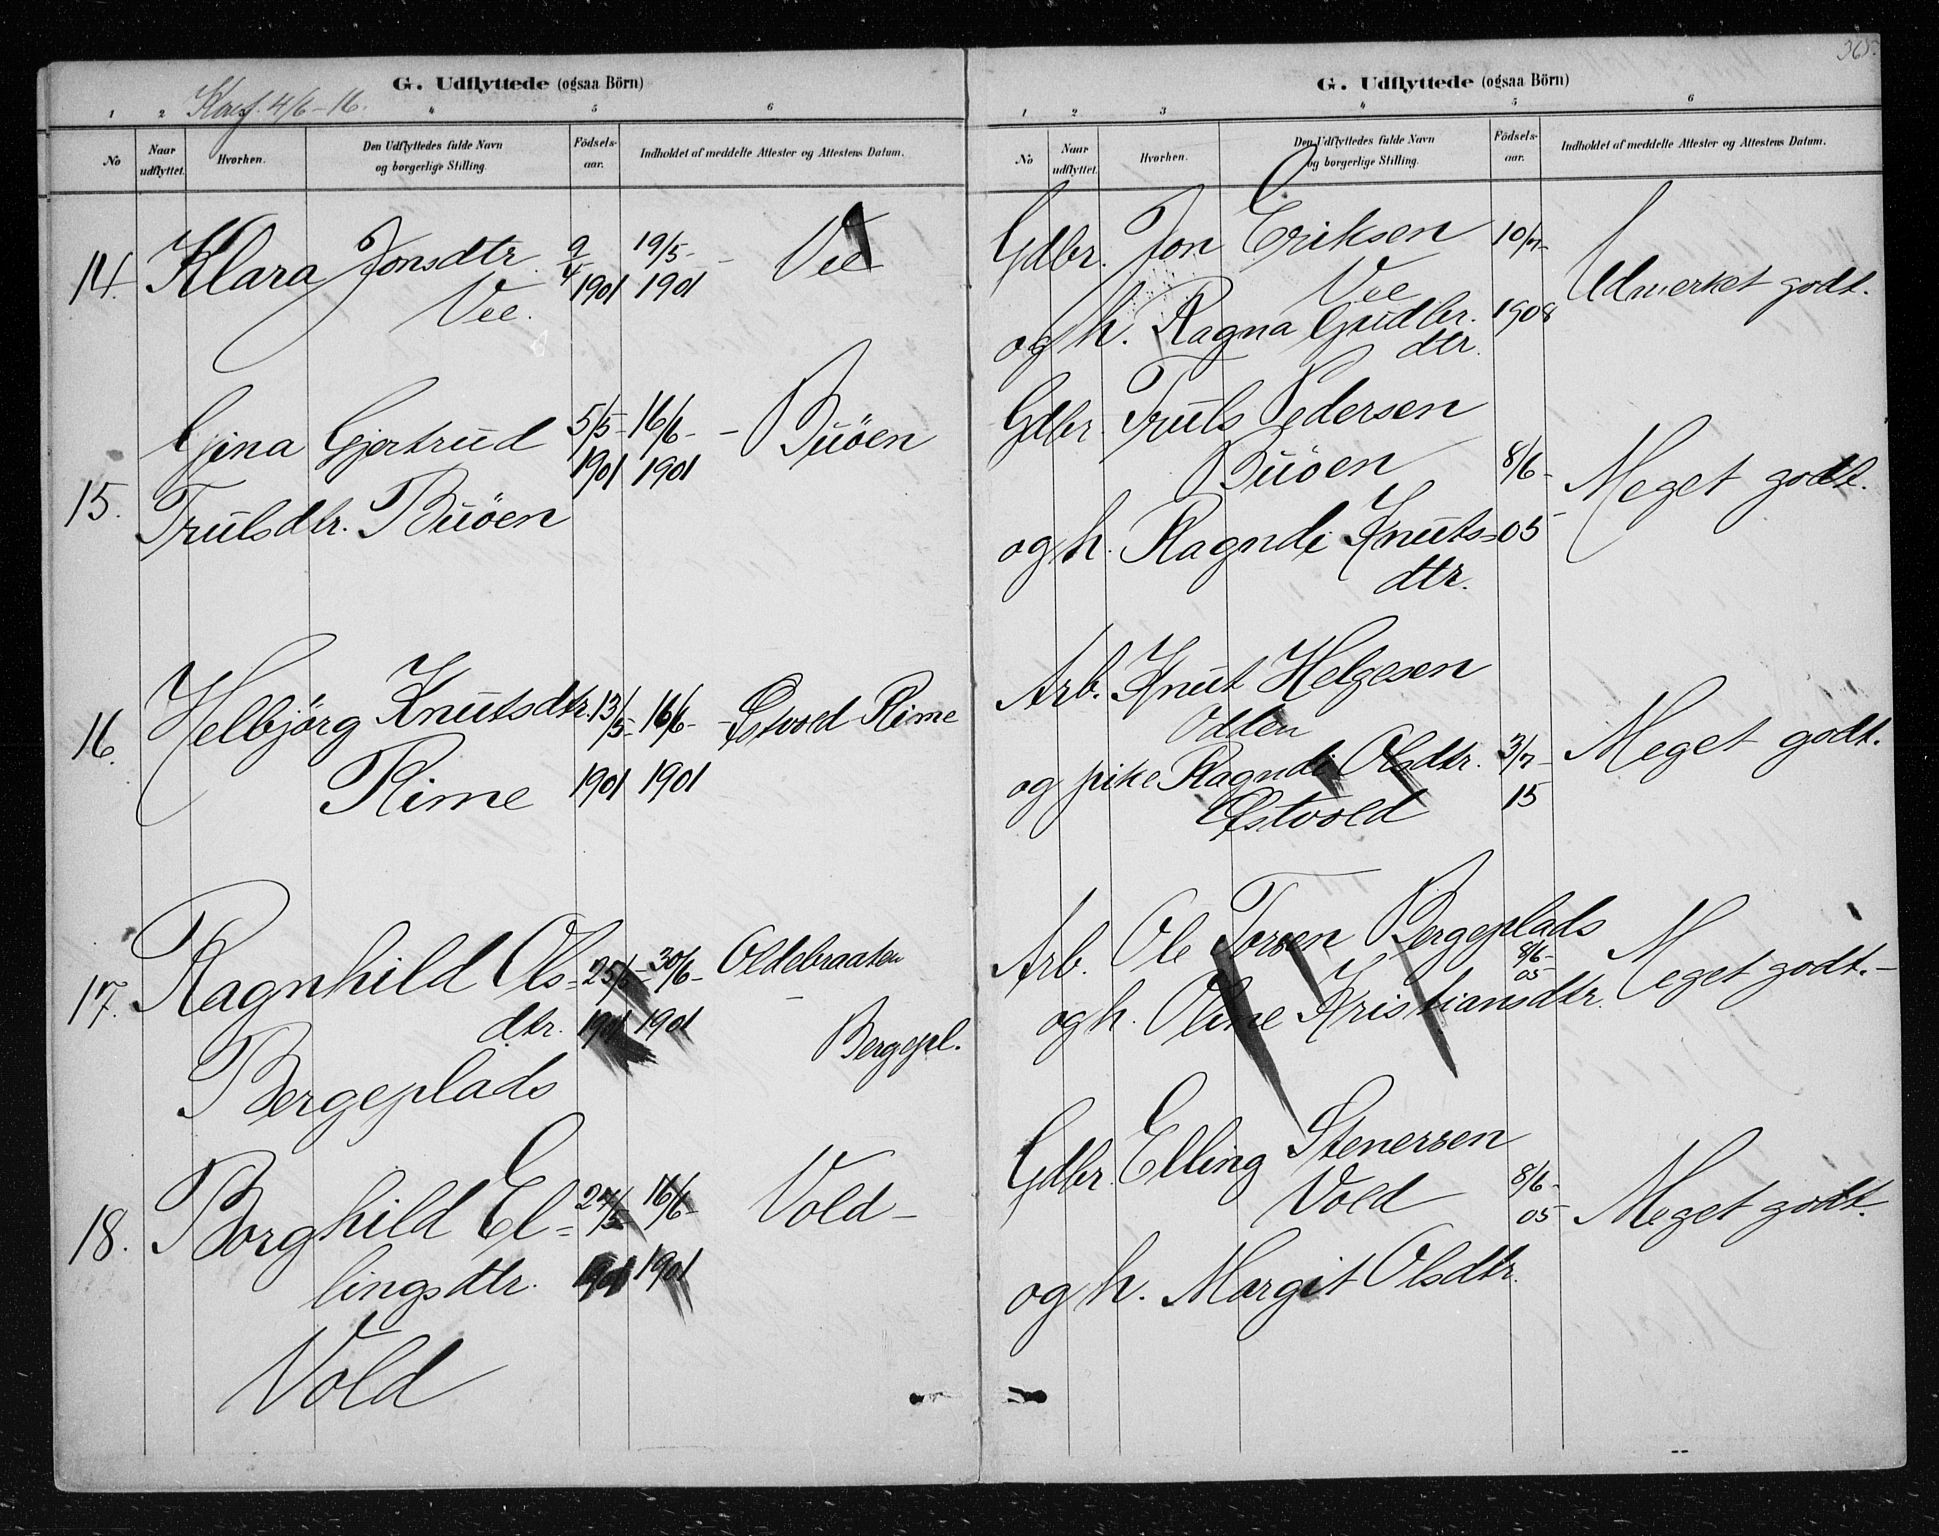 G. Udflyttede (ogsaa Börn)
Konf. 4/6-16.
1 2 4 5 6
No
Naar udflyttet.
Hvorhen.
Den Udflyttedes fulde Navn og borgerlige Stilling.
Födsels-aar.
Indholdet af meddelte Attester og Attestens Datum.
14. Klara Jonsdtr. 9/4 19/5- - Vee
Vee. 1901 1901
Gjina Gjertrud 5/5- 16/6- - Buöen
1901 1901
15. Trulsdtr. Buöen
16. Helbjörg Knutsdtr. 13/5- 16/6- - Østvold Rime
Rime 1901 1901
17. Ragnhild Ols= 25/5- 30/6- Oldebraaten
dtr. 1901 1901 - Bergepl.
Bergeplads
18. Borghild El= 24/5- 16/6- Vold -
lingsdtr. 1901 1901
Vold
365.
G. Udflyttede (ogsaa Börn)
1 2 3 4 5 6
No
Naar udflyttet.
Hvorhen.
Den Udflyttedes fulde Navn og borgerlige Stilling.
Födsels-aar.
Indholdet af meddelte Attester og Attestens Datum.
Gdbr. Jon Eriksen 10/7-
Vee Udmerket godt.
og h. Ragna Gudbr. 1908
dtr.
Gdbr. Truls Pedersen
Buöen 8/6- Meget godt.
og h. Ragndi Knuts= 05
dtr.
Arb. Knut Helgesen
Odden
og pike Ragndi Olsdtr. 3/7- Meget godt.
Østvold 15
Arb. Ole Torsen Bergeplads
8/6-05 Meget godt.-
og h. Oline Kristiansdtr.
Gdbr. Elling Stenersen
Vold 8/6-05 Meget godt.
og h. Margit Olsdtr.